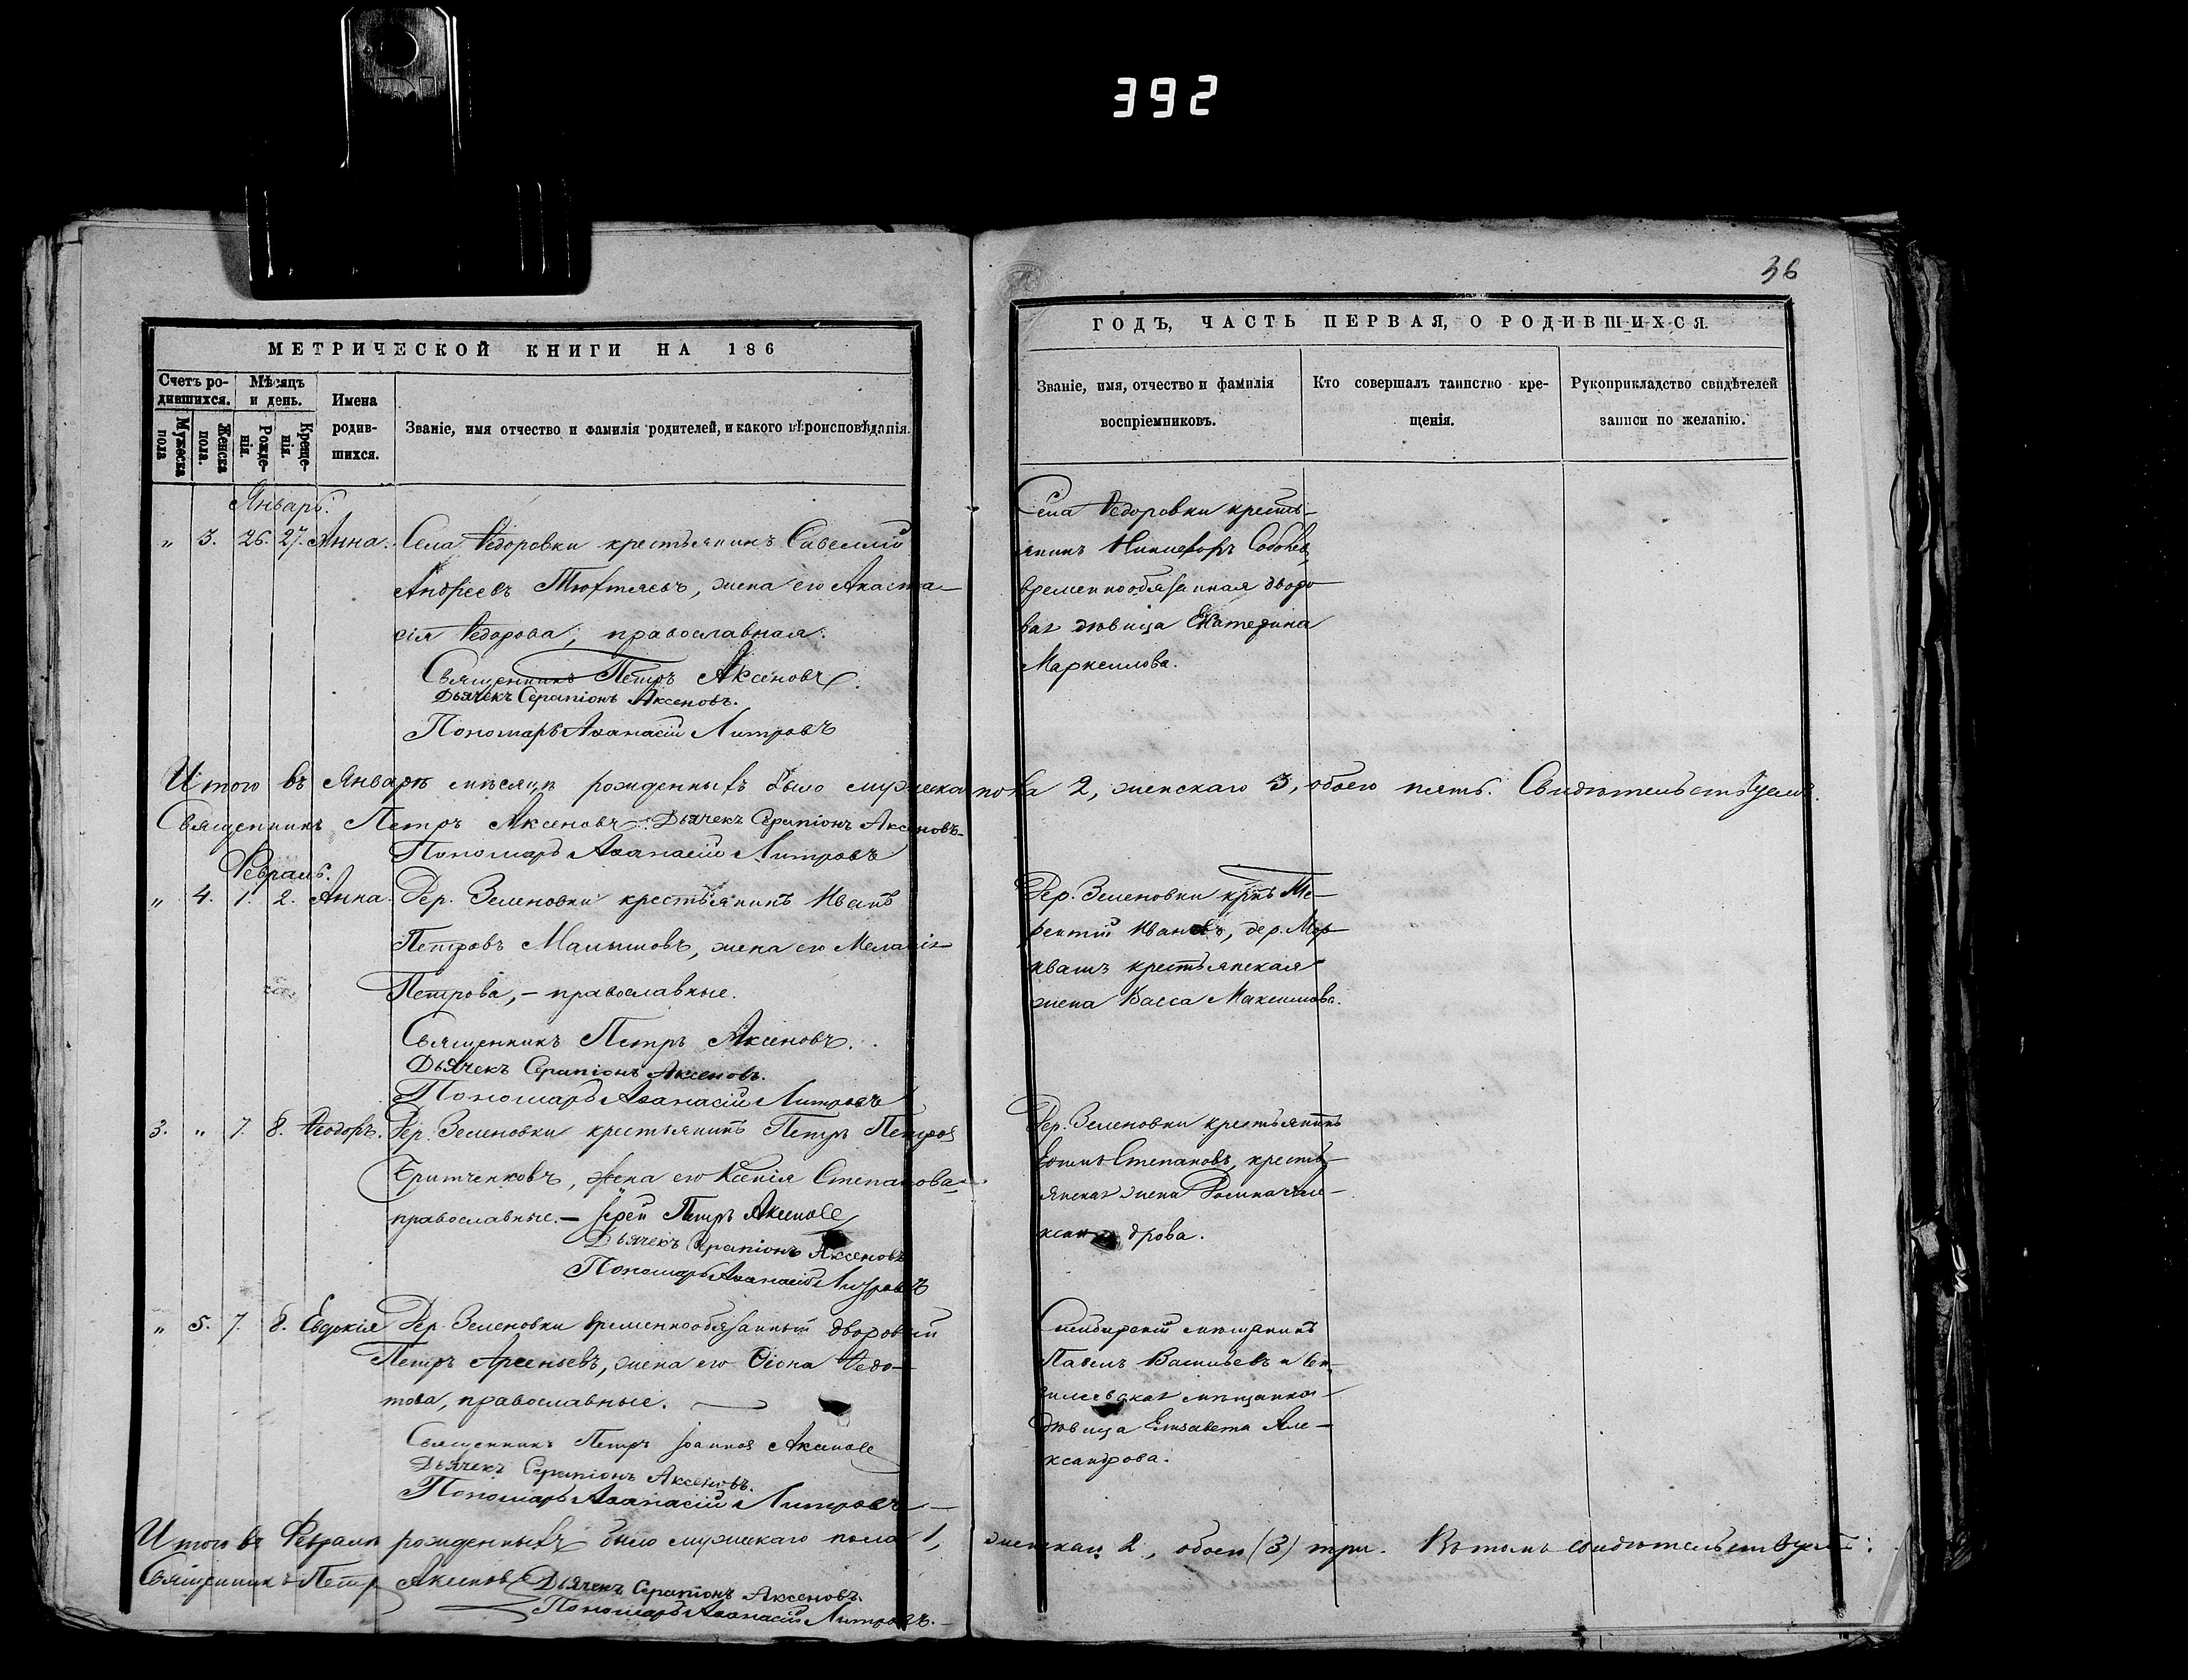 392
36
МЕТРИЧЕСКОЙ КНИГИ НА 186
Счетъ ро-
дившихся.
Мѣсяцъ
и день.
Имена
родив-
шихся.
Званіе, имя отчество и фамилія родителей, и какого вѣроисповѣданія.
Мужеска
пола
Женска
пола.
Рожде-
нія.
Креще-
нія.
Январь.
„ 3. 26. 27. Анна. Села Ѳедоровки крестьянинъ Савелій
Андреевъ Тюфтяевъ, жена его Анаста-
сія Ѳедорова, православная.
Священникъ Петръ Аксеновъ.
Дьячекъ Серапіонъ Аксеновъ.
Пономарь Аѳанасій Литровъ
Итого въ Январѣ мѣсяцѣ рожденныхъ было мужеска пола 2, женскаго 3, обоего пять. Свидѣтельствуемъ.
Священникъ Петръ Аксеновъ Дьячекъ Серапіонъ Аксеновъ
Пономарь Аѳанасій Литровъ
Февраль.
„ 4. 1. 2. Анна. Дер. Зеленовки крестьянинъ Иванъ
Петровъ Малышовъ, жена его Меланія
Петрова, – православные.
Священникъ Петръ Аксеновъ.
Дьячекъ Серапіонъ Аксеновъ.
Пономарь Аѳанасій Литровъ
3. „ 7. 8. Ѳеодоръ. Дер. Зеленовки крестьянинъ Петръ Петровъ
Бритченковъ, жена его Ксенія Степанова
православные. – Іерей Петръ Аксеновъ
Дьячекъ Серапіонъ Аксеновъ
Пономарь Аѳанасій Литровъ
„ 5. 7. 8. Евдокія Дер. Зеленовки временнообязанный дворовый
Петръ Арсеньевъ, жена его Ѳіона Ѳедо-
това, православные.
Священникъ Петръ Іоанновъ Аксеновъ
Дьячекъ Серапіонъ Аксеновъ.
Пономарь Аѳанасій Литровъ
Итого въ Февралѣ рожденныхъ было мужескаго пола 1, женскаго 2, обоего (3) три. Въ томъ свидѣтельствуемъ:
Священникъ Петръ Аксеновъ Дьячекъ Серапіонъ Аксеновъ.
Пономарь Аѳанасій Литровъ.
ГОДЪ, ЧАСТЬ ПЕРВАЯ, О РОДИВШИХСЯ.
Званіе, имя, отчество и фамилія
воспріемниковъ.
Кто совершалъ таинство кре-
щенія.
Рукоприкладство свидѣтелей
записи по желанію.
Села Ѳедоровки кресть-
янинъ Никифоръ
временнообязанная дворо-
вая дѣвица Екатерина
Маркелова.
Дер. Зеленовки Те-
рентій Ивановъ, дер. Мор-
квашъ крестьянская
жена Васса Максимова.
Дер. Зеленовки крестьянинъ
Степановъ, кресть-
янская жена Але-
ксандрова.
Симбирскій мѣщанинъ
Павелъ Васильевъ и Сен-
гилеевская мѣщанка
дѣвица Елисавета Але-
ксандрова.